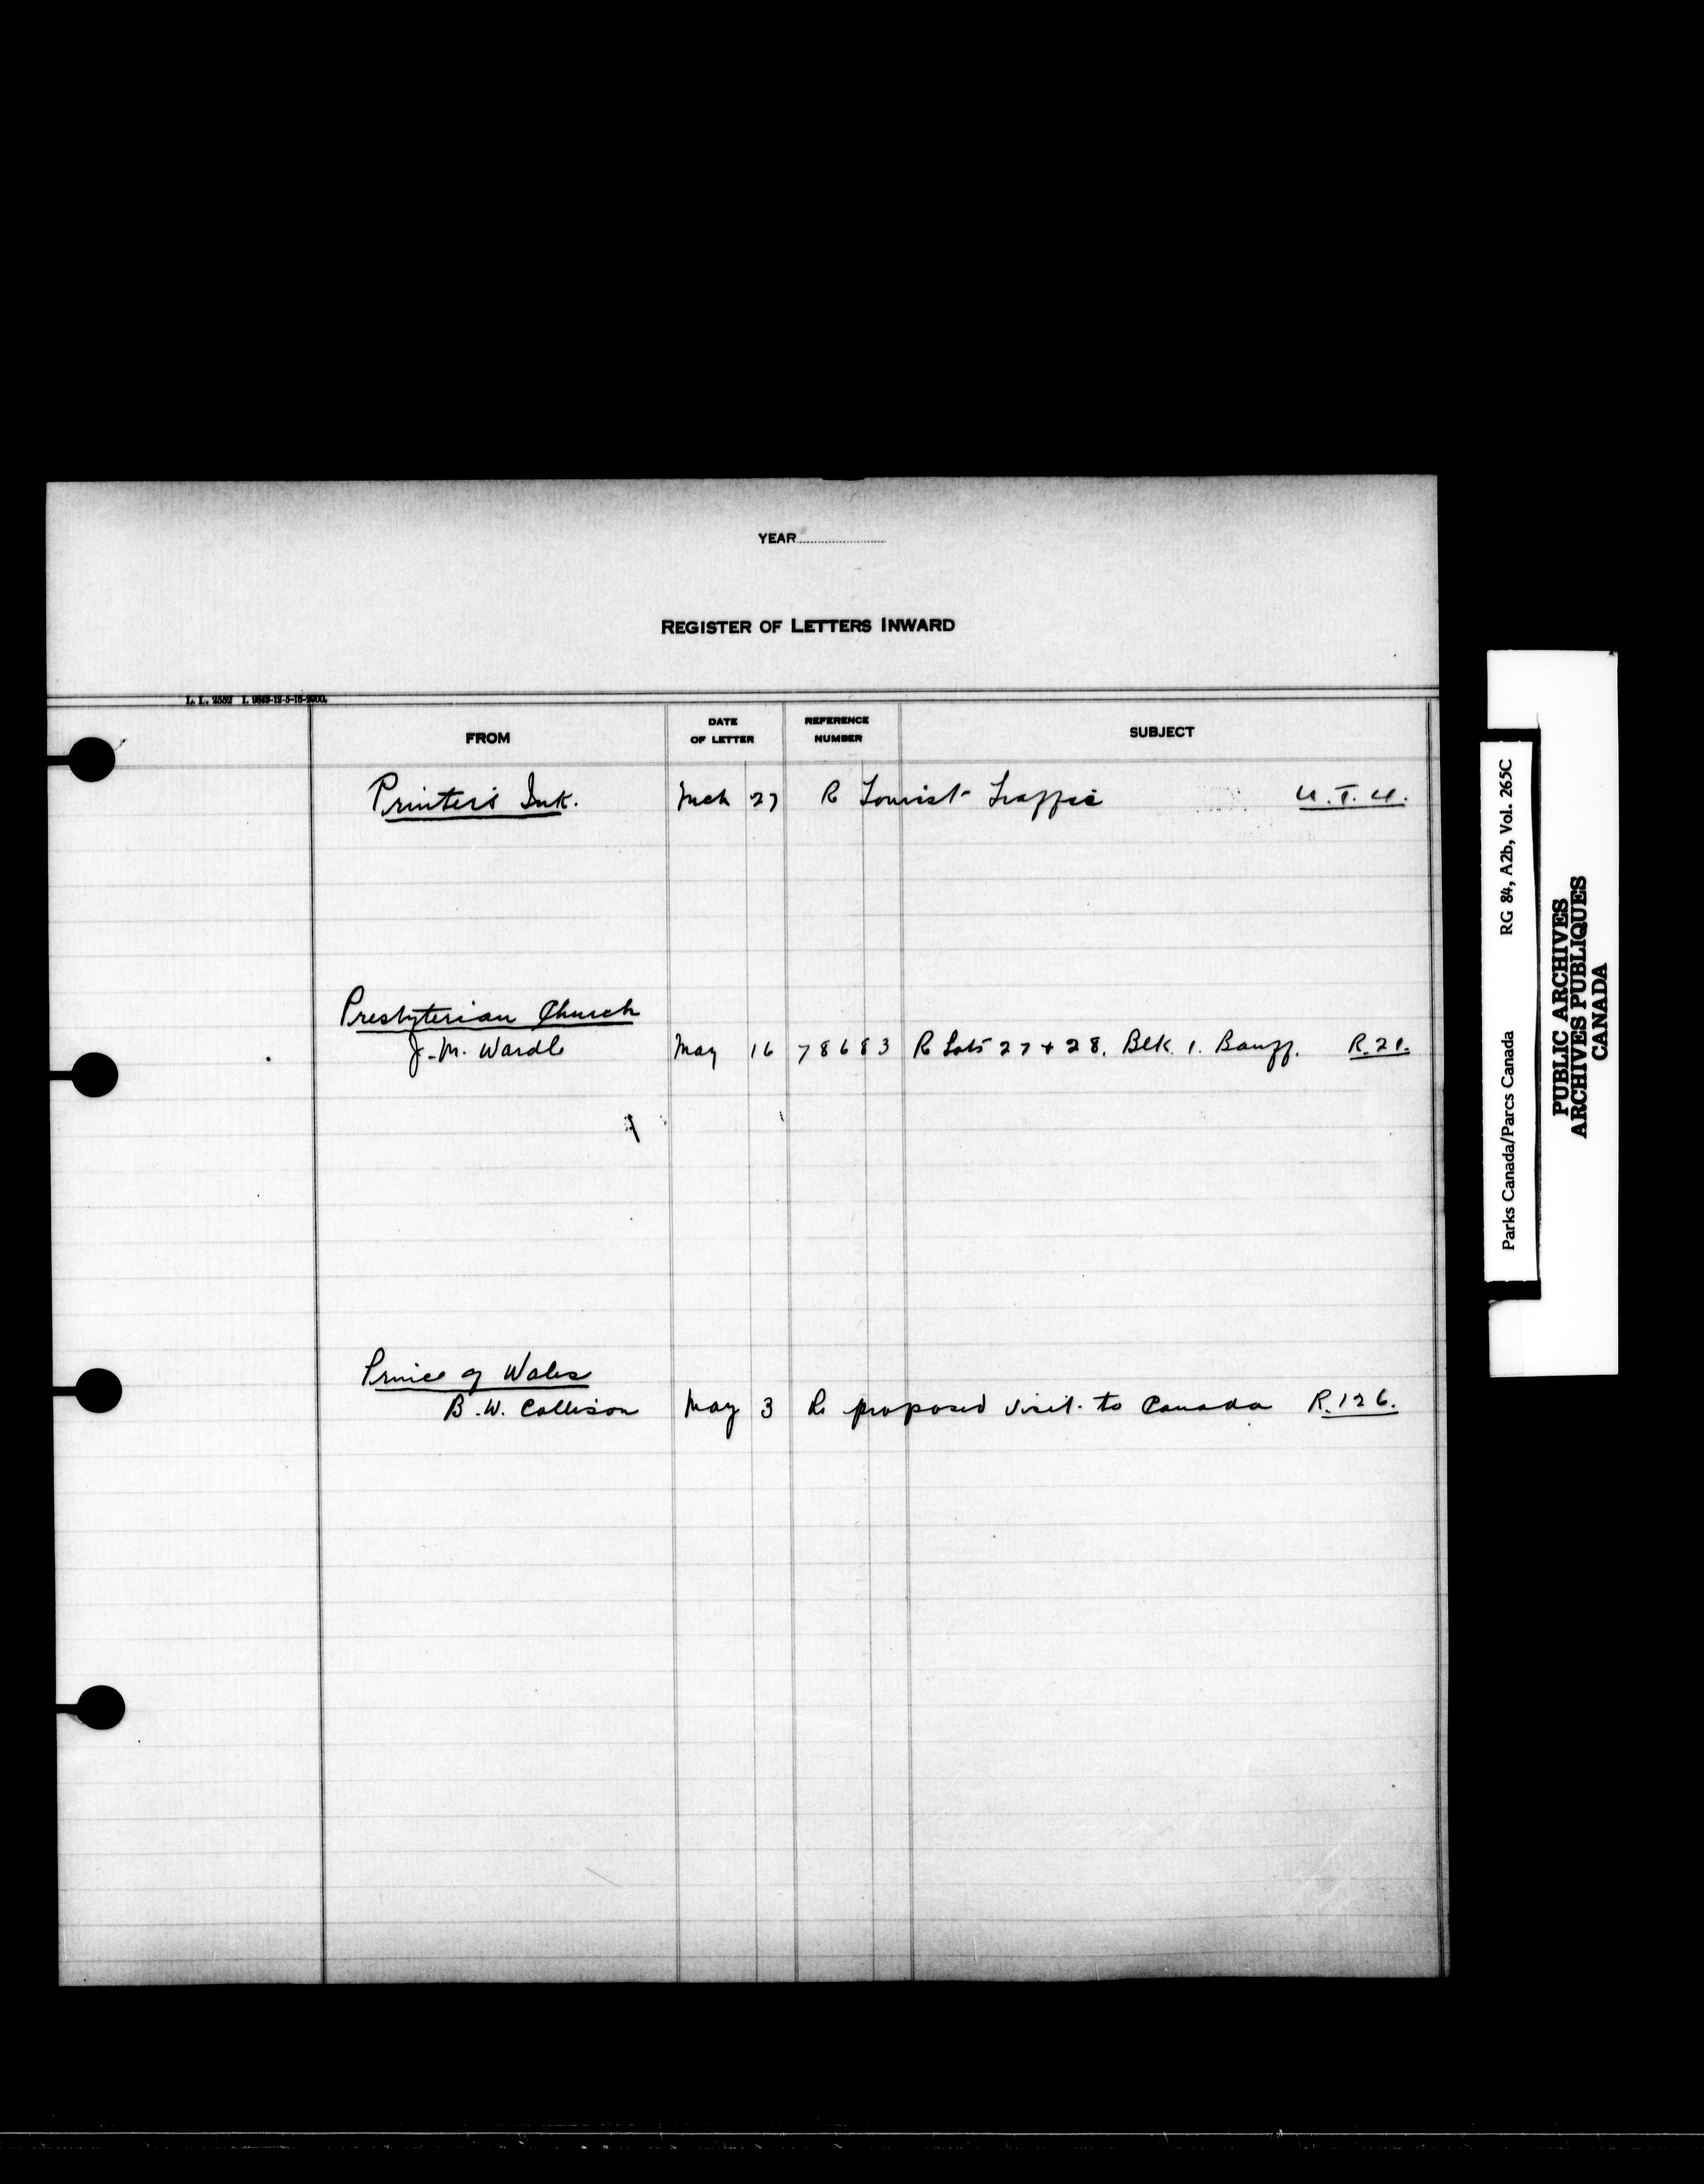 YEAR
REGISTER OF LETTERS INWARD
L. L. 2552
FROM DATE OF LETTER REFERENCE NUMBER SUBJECT
Printer's Ink. Mch 27 Re Tourist Traffic U.T.U.
Presbyterian Church
J.M. Wardle May 16 78683 Re Lots 27 + 28. Blk. 1. Banff. R.21.
Prince of Wales
B.W. Collison May 3 Re proposed visit to Canada R.126.
Parks Canada/Parcs Canada RG 84, A2b, Vol. 265C
PUBLIC ARCHIVES
ARCHIVES PUBLIQUES
CANADA